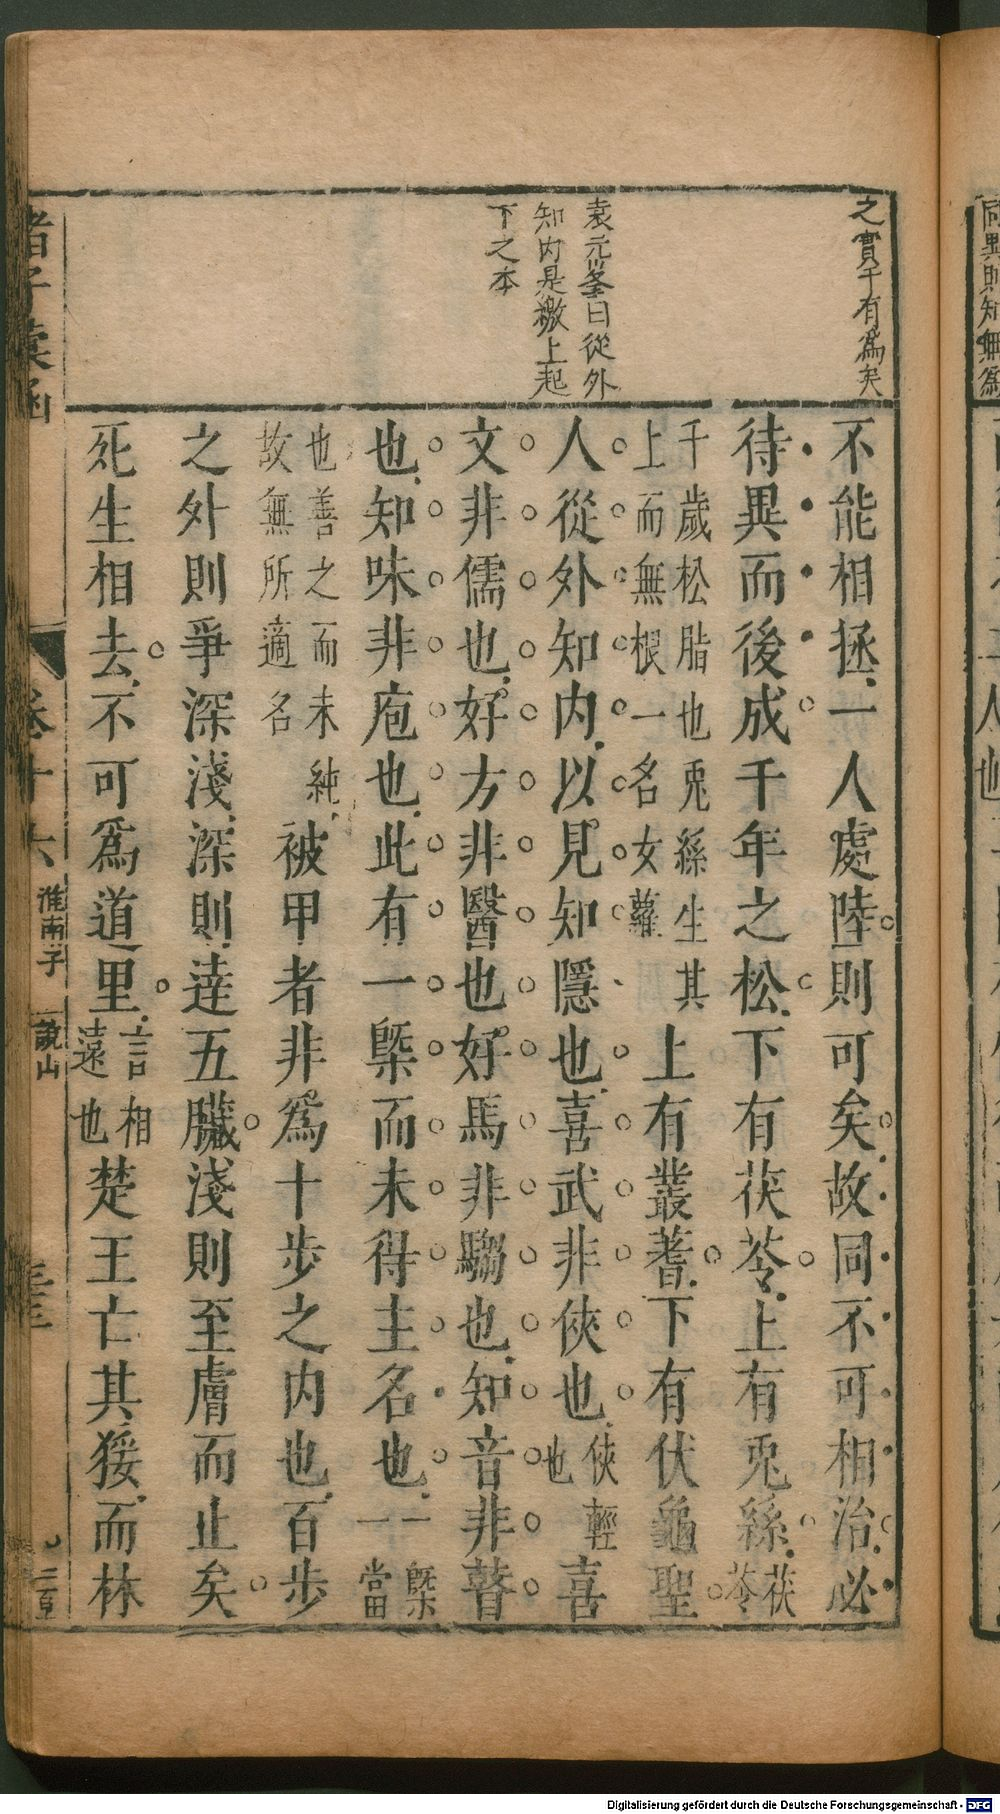 之實于有為矣
袁元峯曰從外
知内是繳上起
下之本
不能相拯一人處陸則可矣故同不可相治必
待異而後成千年之松下有茯苓上有兎絲茯苓
千歲松脂也兎絲生其上而無根一名女蘿上有叢蓍下有伏龜聖
人從外知内以見知隱也喜武非俠也俠輕也喜
文非儒也好方非醫也好馬非騶也知音非瞽
也知味非庖也此有一槩而未得主名也一槩一當
也善之而未純故無所適名被甲者非爲十步之内也百步
之外則爭深淺深則達五臟淺則至膚而止矣
死生相去不可爲道里言相遠也楚王亡其猨而林
諸子彙函
卷十六
淮南子
說山
同異則知無為
人
也
Digitalisierung gefördert durch die Deutsche Forschungsgemeinschaft - DFG